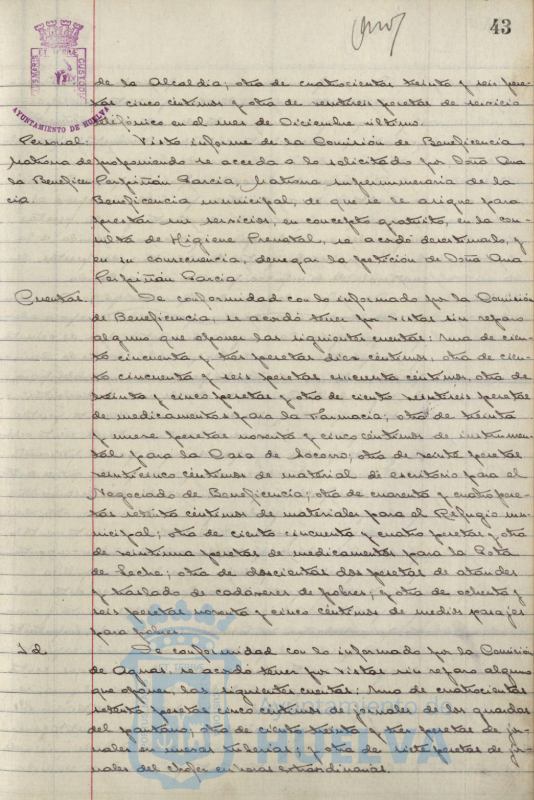 43
AYUNTAMIENTO DE HUELVA
de la Alcaldia; otra de cuatrocientas treinta y seis pese-
tas cinco céntimos y otra de veintiseis pesetas de servicio
telefónico en el mes de Diciembre último.
Personal: Visto informe de la Comisión de Beneficencia
Matrona de proponiendo se acceda a lo solicitado por Doña Ana
la Beneficen Perpiñán Garcia, Matrona supernumeraria de la
cia. Beneficencia municipal, de que se le asigne para
prestar sus servicios, en concepto gratuito, en la con-
sulta de Higiene Prenatal, se acordó desestimarlo, y
en su consecuencia, denegar la petición de Doña Ana
Perpiñán Garcia.
Cuentas. De conformidad con lo informado por la Comisión
de Beneficencia, se acordó tener por vistas sin reparo
alguno que oponer las siguientes cuentas: Una de cien-
to cincuenta y tres pesetas diez céntimos, otra de cien-
to cincuenta y seis pesetas cincuenta céntimos, otra de
treinta y cinco pesetas y otra de ciento veintiseis pesetas
de medicamentos para la Farmacia; otra de treinta
y nueve pesetas noventa y cinco céntimos de instrumen-
tal para la Casa de Socorro; otra de veinte pesetas
veinticinco céntimos de material de escritorio para el
Negociado de Beneficencia; otra de cuarenta y cuatro pese-
tas setenta céntimos de materiales para el Refugio mu-
nicipal; otra de ciento cincuenta y cuatro pesetas y otra
de veintiuna pesetas de medicamentos para la Gota
de Leche; otra de doscientas dos pesetas de ataudes
y traslado de cadáveres de pobres; y otra de ochenta y
seis pesetas noventa y cinco céntimos de medios pasajes
para pobres.
Id. De conformidad con lo informado por la Comisión
de Aguas, se acordó tener por vistas sin reparo alguno
que oponer, las siguientes cuentas: Una de cuatrocientas
setenta pesetas cinco céntimos de jornales de los guardas
del pantano; otra de ciento treinta y tres pesetas de jor-
nales en nuevas tuberias; y otra de siete pesetas de jor-
nales del chofer en horas extraordinarias.
Ayuntamiento de
HUELVA